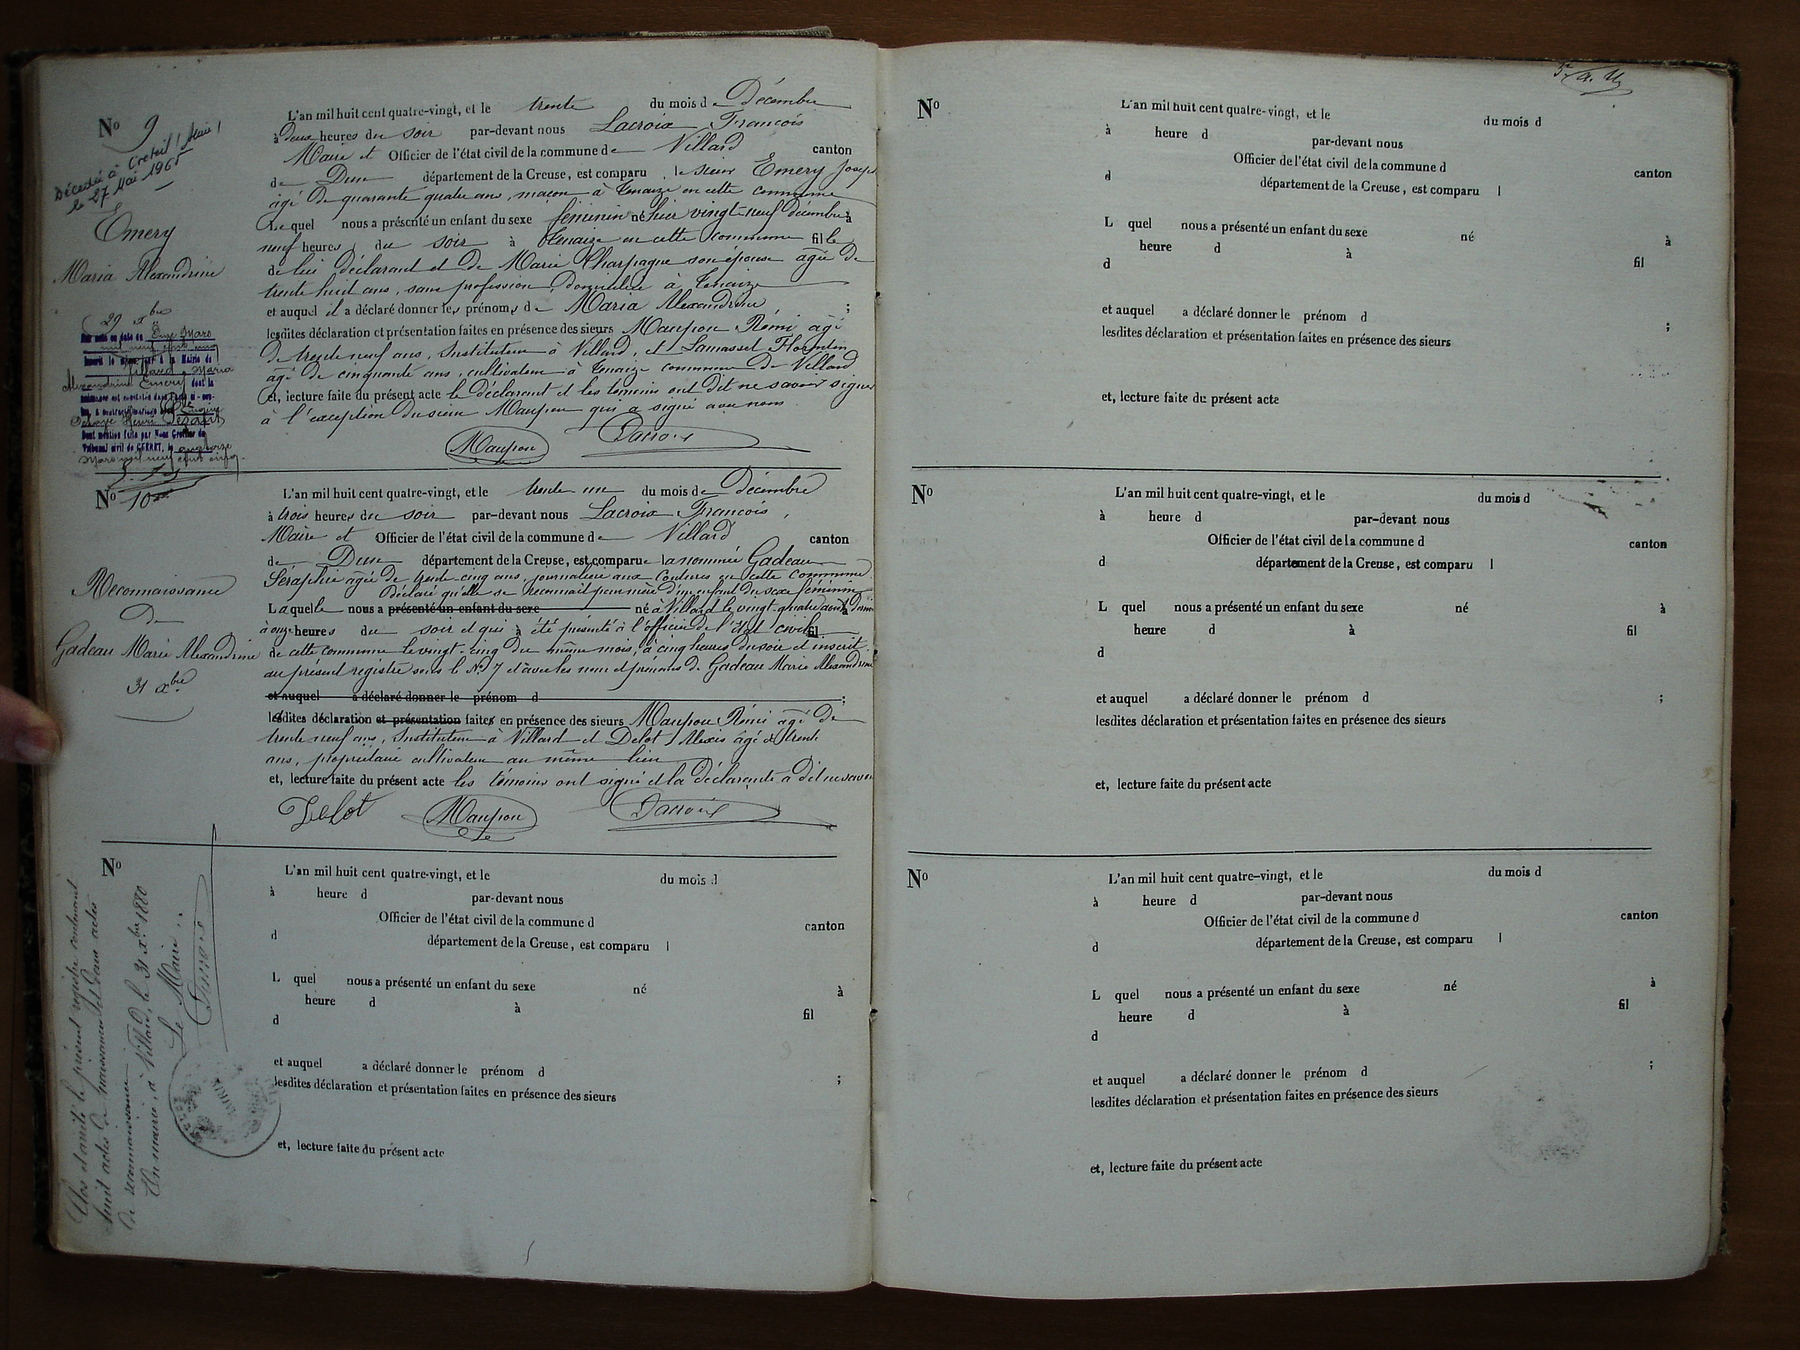 N° 9
Décédée à Créteil (Seine)
le 27 Mai 1965
Emery
Maria Alexandrine
29 Xbre
Par acte en date du Onze Mars
mil neuf cent cinq
inscrit le même jour à la Mairie de
Villard, Maria
Alexandrine Emery dont la
naissance est constatée dans l'acte ci-con-
tre, a contracté mariage avec Eugène
Henri
Dont mention faite par Nous Greffier du
Tribunal civil de GUÉRET, le quatorze
Mars mil neuf cent cinq.
L'an mil huit cent quatre-vingt, et le trente du mois de Décembre
à deux heures du soir par-devant nous Lacroix François
Maire et Officier de l'état civil de la commune de Villard canton
de Dun département de la Creuse, est comparu le sieur Emery Joseph
âgé de quarante quatre ans, maçon à Thnaize en cette commune
Lequel nous a présenté un enfant du sexe féminin né hier vingt-neuf décembre à
neuf heures du soir à Thnaize en cette commune fille
de lui déclarant et de Marie Charpagne son épouse âgée de
trente huit ans, sans profession, domiciliée à Thnaize
et auquel il a déclaré donner les prénoms de Maria Alexandrine ;
lesdites déclaration et présentation faites en présence des sieurs Maupou Rémi âgé
de trente neuf ans, Instituteur à Villard, et Lamasset Florentin
âgé de cinquante ans, cultivateur à Thnaize commune de Villard
et, lecture faite du présent acte le déclarant et les témoins ont dit ne savoir signer
à l'exception du sieur Maupou qui a signé avec nous
Maupou Lacroix
N° 10
Reconnaissance
de
Gadeau Marie Alexandrine
31 Xbre
L'an mil huit cent quatre-vingt, et le trente un du mois de Décembre
à trois heures du soir par-devant nous Lacroix François,
Maire et Officier de l'état civil de la commune de Villard canton
de Dun département de la Creuse, est comparue la nommée Gadeau
Séraphie âgée de trente-cinq ans, journalière aux Coutures en cette commune
Déclaré qu'elle se reconnait pour mère d'un enfant du sexe féminin
Laquelle nous a présenté un enfant du sexe né à Villard le vingt-quatre août dernier
à onze heures du soir et qui a été présenté à l'officier de l'état civil fil
de cette commune le vingt-cinq du même mois, à cinq heures du soir et inscrit
au présent registre sous le N° 7 et avec les nom et prénoms de Gadeau Marie Alexandrine
et auquel a déclaré donner le prénom d ;
lesdites déclaration et présentation faites en présence des sieurs Maupou Rémi âgé de
trente neuf ans, Instituteur à Villard et Delot Alexis âgé de trente
ans, propriétaire cultivateur au même lieu
et, lecture faite du présent acte les témoins ont signé et la déclarante a dit ne savoir
Delot Maupou Lacroix
N°
L'an mil huit cent quatre-vingt, et le du mois d
à heure d par-devant nous
Officier de l'état civil de la commune d canton
d département de la Creuse, est comparu l
L quel nous a présenté un enfant du sexe né à
heure d à fil
d
et auquel a déclaré donner le prénom d ;
lesdites déclaration et présentation faites en présence des sieurs
et, lecture faite du présent acte
Clos et arrêté le présent registre contenant
huit actes de naissances et deux actes
de reconnaissance
En mairie, à Villard, le 31 Xbre 1880
Le Maire :
Lacroix
N°
L'an mil huit cent quatre-vingt, et le du mois d
à heure d par-devant nous
Officier de l'état civil de la commune d canton
d département de la Creuse, est comparu l
L quel nous a présenté un enfant du sexe né à
heure d à fil
d
et auquel a déclaré donner le prénom d ;
lesdites déclaration et présentation faites en présence des sieurs
et, lecture faite du présent acte
N°
L'an mil huit cent quatre-vingt, et le du mois d
à heure d par-devant nous
Officier de l'état civil de la commune d canton
d département de la Creuse, est comparu l
L quel nous a présenté un enfant du sexe né à
heure d à fil
d
et auquel a déclaré donner le prénom d ;
lesdites déclaration et présentation faites en présence des sieurs
et, lecture faite du présent acte
N°
L'an mil huit cent quatre-vingt, et le du mois d
à heure d par-devant nous
Officier de l'état civil de la commune d canton
d département de la Creuse, est comparu l
L quel nous a présenté un enfant du sexe né à
heure d à fil
d
et auquel a déclaré donner le prénom d ;
lesdites déclaration et présentation faites en présence des sieurs
et, lecture faite du présent acte